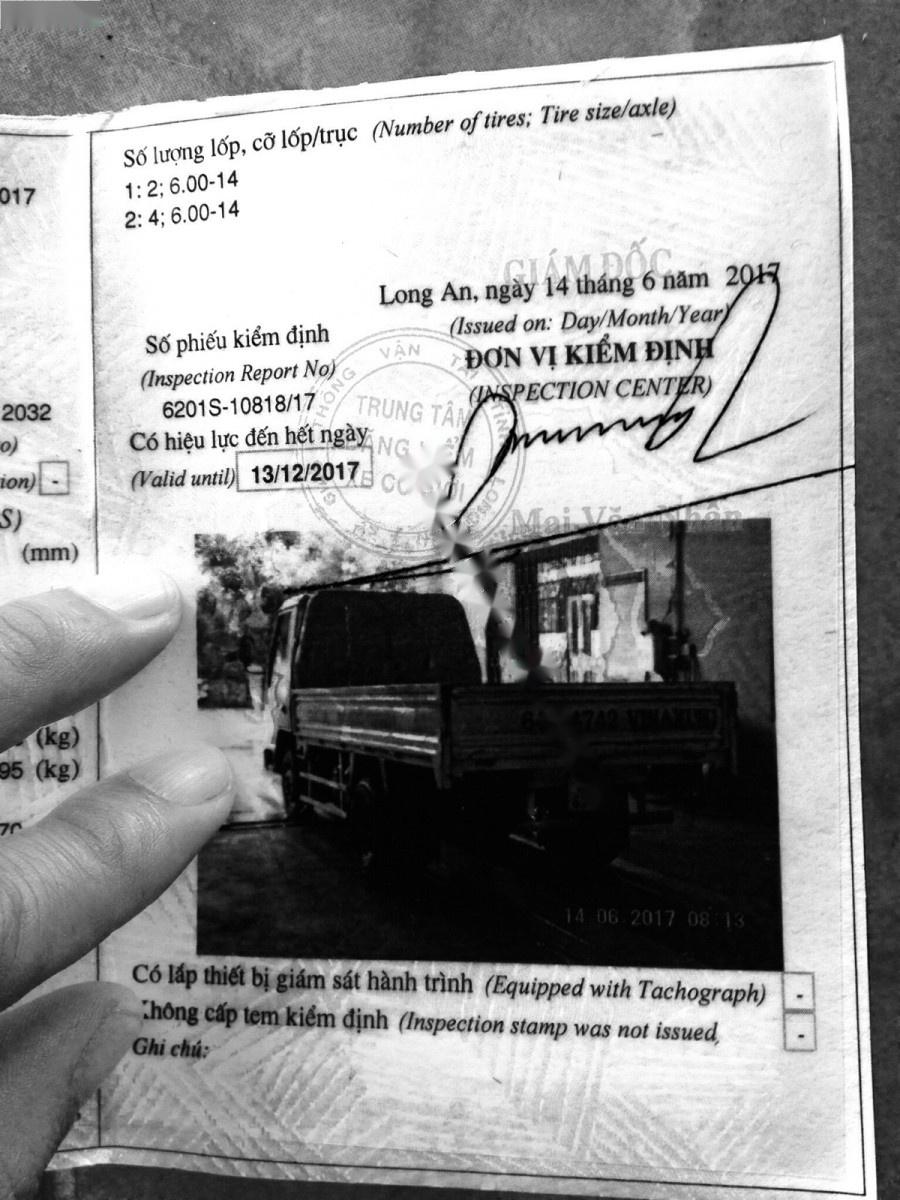 017
2032
o)
ion) -
S)
(mm)
(kg)
95 (kg)
Số lượng lốp, cỡ lốp/trục (Number of tires; Tire size/axle)
1: 2; 6.00-14
2: 4; 6.00-14
GIÁM ĐỐC
Long An, ngày 14 tháng 6 năm 2017
(Issued on: Day/Month/Year)
ĐƠN VỊ KIỂM ĐỊNH
(INSPECTION CENTER)
Số phiếu kiểm định
(Inspection Report No)
6201S-10818/17
Có hiệu lực đến hết ngày
(Valid until) 13/12/2017
TRUNG TÂM
ĐĂNG KIỂM
XE CƠ GIỚI
Mai Văn Nhân
14 06 2017 08:13
Có lắp thiết bị giám sát hành trình (Equipped with Tachograph) -
Không cấp tem kiểm định (Inspection stamp was not issued, -
Ghi chú: